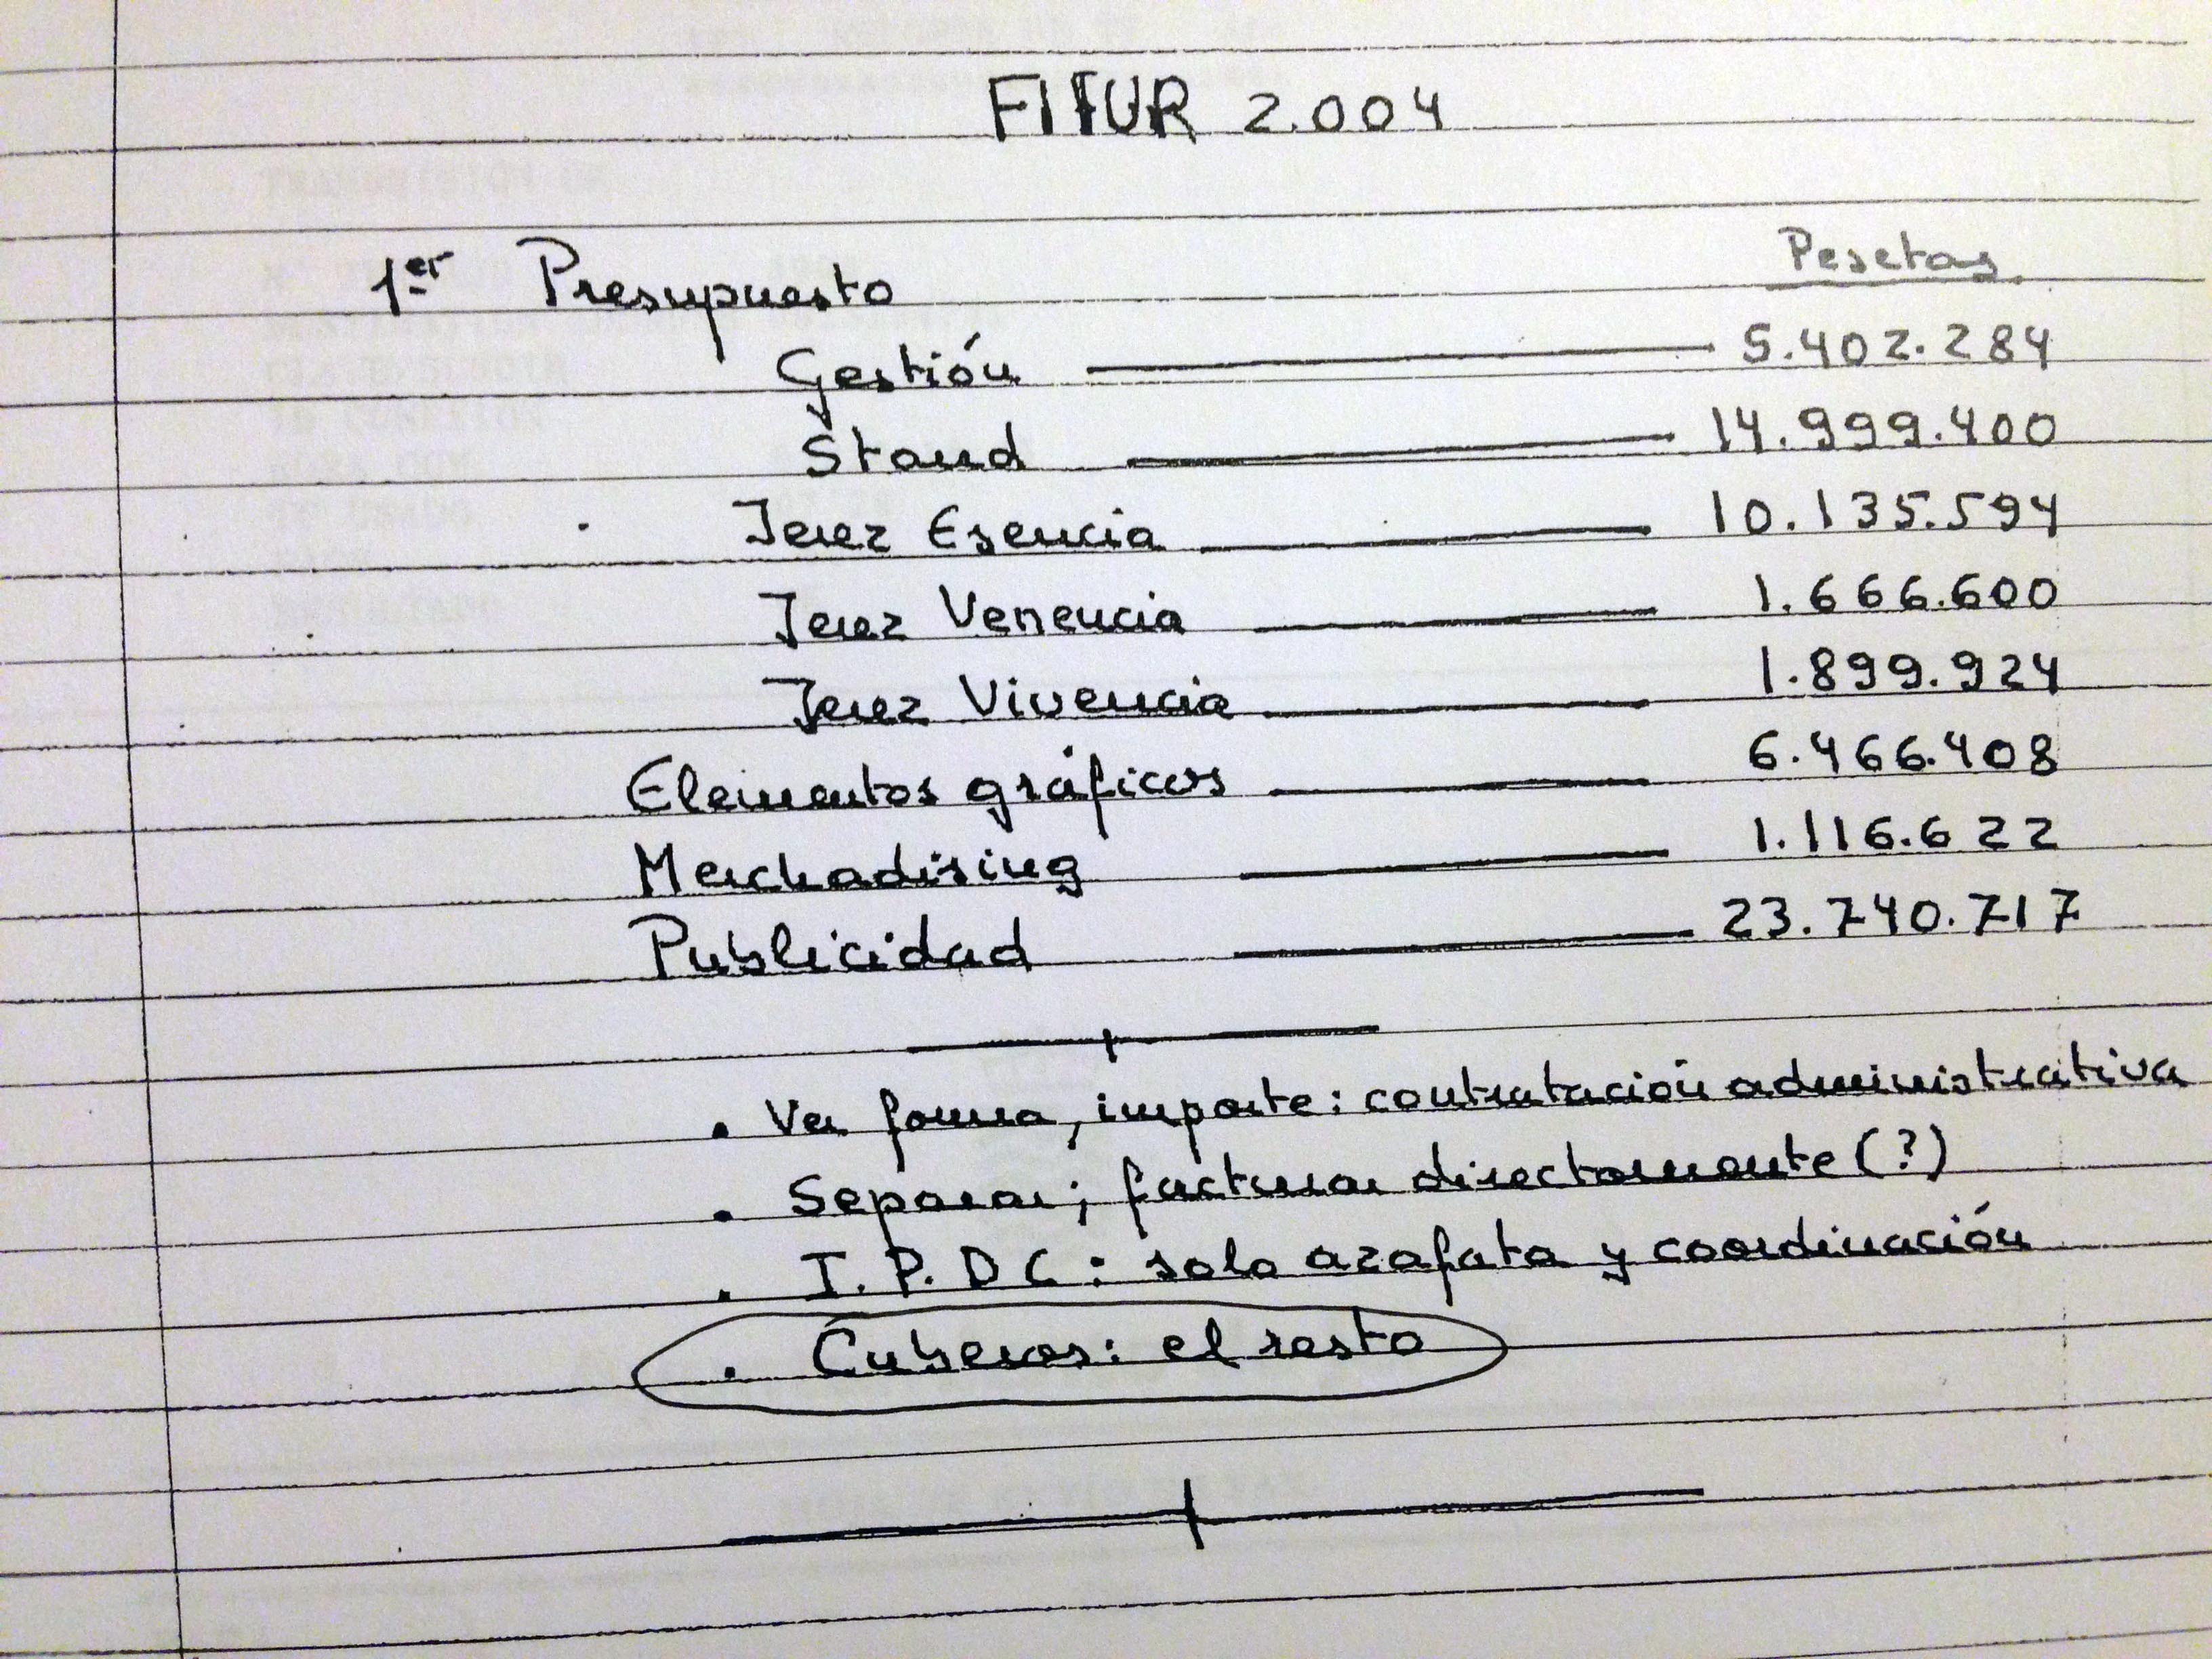 FITUR 2.004
1er Presupuesto Pesetas
Gestión 5.402.284
Stand 14.999.400
Jerez Esencia 10.135.594
Jerez Venencia 1.666.600
Jerez Vivencia 1.899.924
Elementos gráficos 6.466.408
Merchadising 1.116.622
Publicidad 23.740.717
. Ver forma, importe: contratación administrativa
. Separar; facturar directamente (?)
. I.P.D.C: solo azafata y coordinación
. Cuberos: el resto